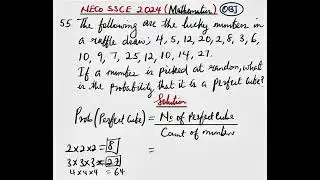 NECO SSCE 2024 (Mathematics) OBJ
55 The following are the lucky numbers in
a raffle draw; 4, 5, 12, 20, 2, 8, 3, 6,
10, 9, 7, 25, 12, 10, 14, 27.
If a number is picked at random, what
is the probability that it is a perfect cube?
Solution
Prob(Perfect Cube) = No of Perfect Cube
Count of numbers
2 x 2 x 2 = 8
3 x 3 x 3 = 27
4 x 4 x 4 = 64
=